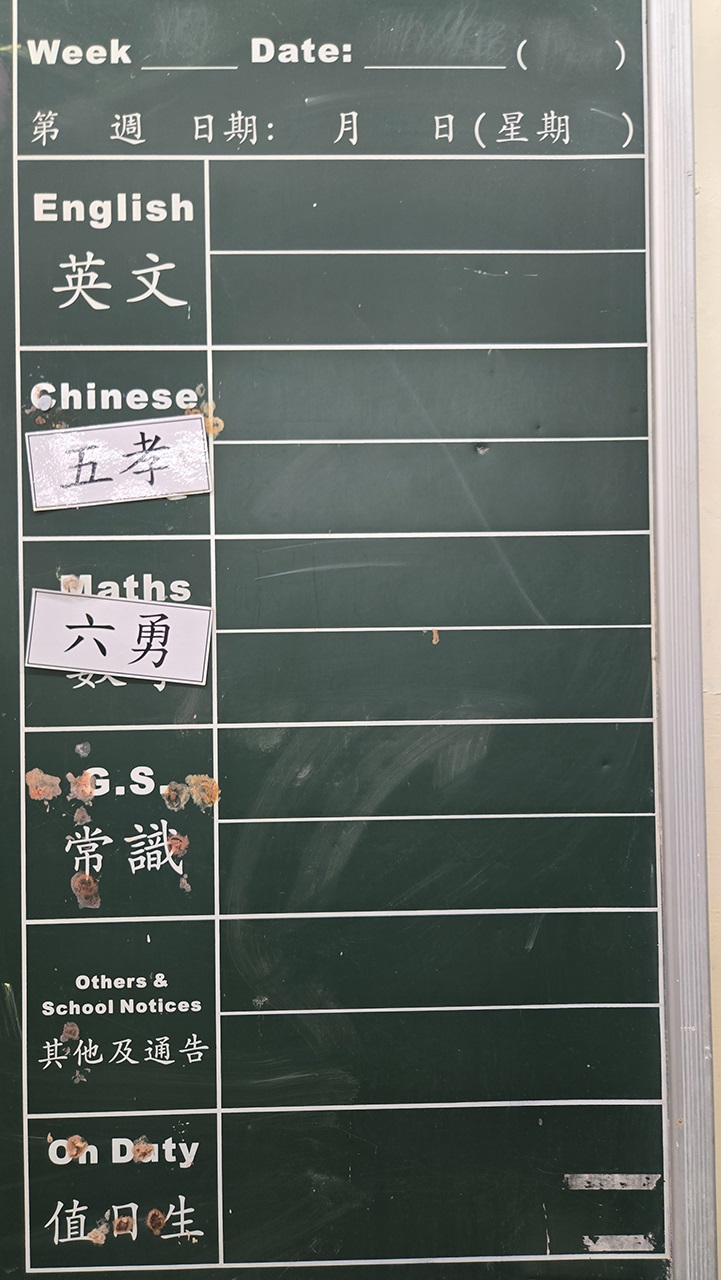 Week _____ Date: __________ ( )
第 週 日期: 月 日(星期 )
English
英文
Chinese
五孝
Maths
六勇
G.S.
常識
Others &
School Notices
其他及通告
On Duty
值日生